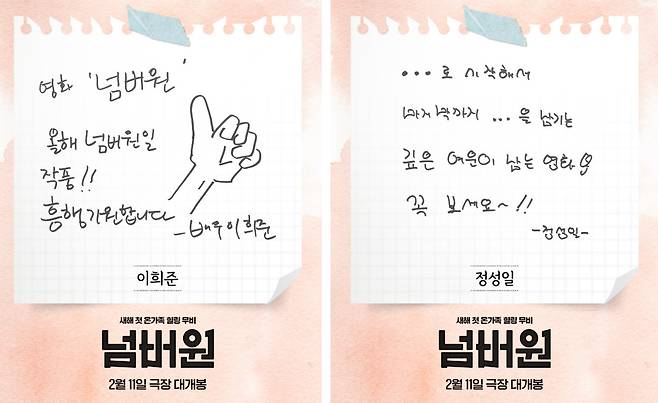 영화 '넘버원'
올해 넘버원일
작품!!
흥행기원합니다
-배우 이희준
이희준
새해 첫 온가족 힐링 무비
넘버원
2월 11일 극장 대개봉
...로 시작해서
마지막까지 ...을 남기는
깊은 여운이 남는 영화
꼭 보세요~!!
-정성일-
정성일
새해 첫 온가족 힐링 무비
넘버원
2월 11일 극장 대개봉